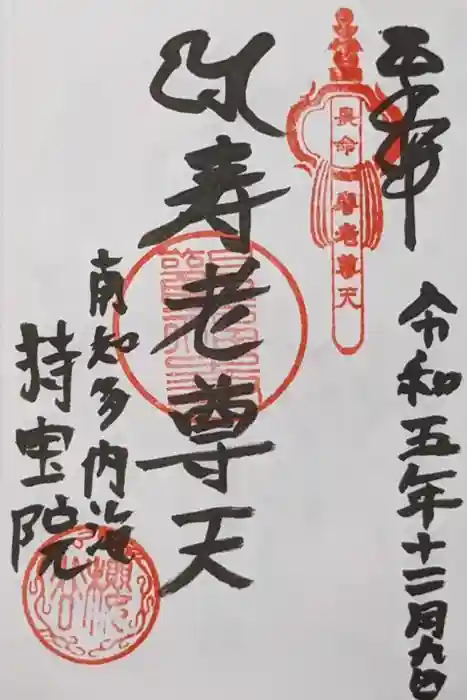 奉拝
令和五年十二月九日
長命壽老尊天
寿老尊天
南知多内海
持宝院